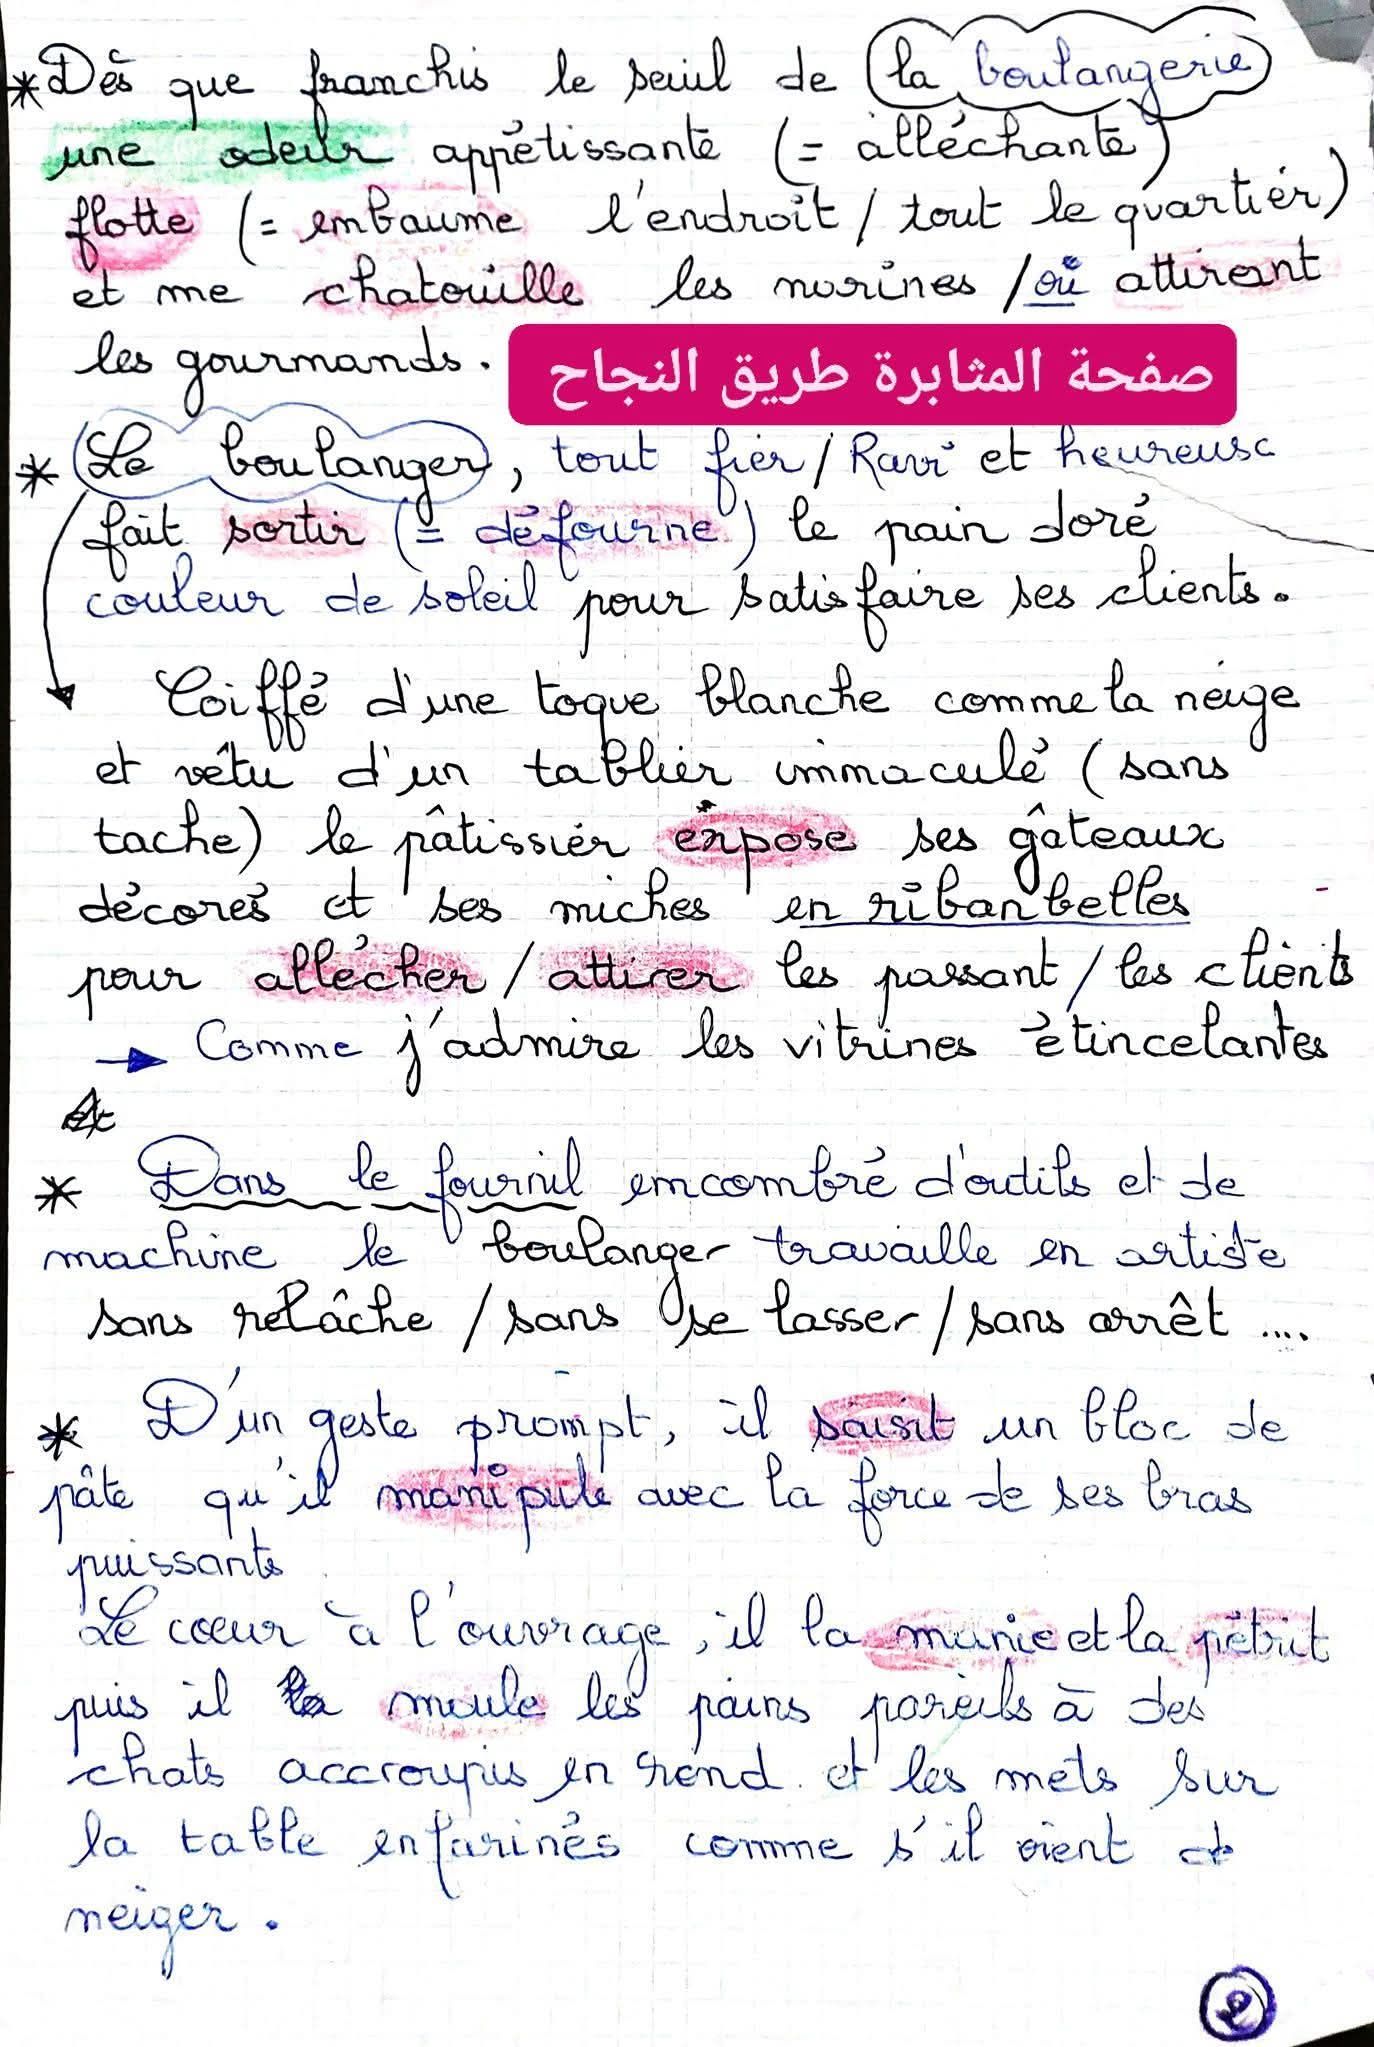 * Dès que franchis le seuil de la boulangerie
une odeur appétissante (= alléchante)
flotte (= embaume l'endroit / tout le quartier)
et me chatouille les narines / où attirant
les gourmands.
صفحة المثابرة طريق النجاح
* Le boulanger, tout fier / Ravi et heureuse
fait sortir (= défourne) le pain doré
couleur de soleil pour satisfaire ses clients.
Coiffé d'une toque blanche comme la neige
et vêtu d'un tablier immaculé (sans
tache) le pâtissier expose ses gâteaux
décorés et ses miches en ribanbelles
pour allécher / attirer les passant / les clients
→ Comme j'admire les vitrines étincelantes
* Dans le fournil emcombré d'outils et de
machine le boulanger travaille en artiste
sans relâche / sans se lasser / sans arrêt ....
* D'un geste prompt, il saisit un bloc de
pâte qu'il manipule avec la force de ses bras
puissants
Le cœur à l'ouvrage, il la manie et la pétrit
puis il moule les pains pareils à des
chats accroupis en rond et les mets sur
la table enfarinés comme s'il vient de
neiger.
2